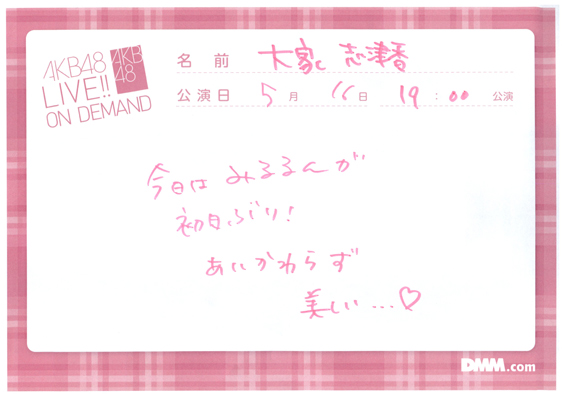 AKB48
LIVE!!
ON DEMAND
AKB
48
名前 大家志津香
公演日 5月16日 19:00 公演
今日はみるるんが
初日ぶり!
あいかわらず
美しい…♡
DMM.com